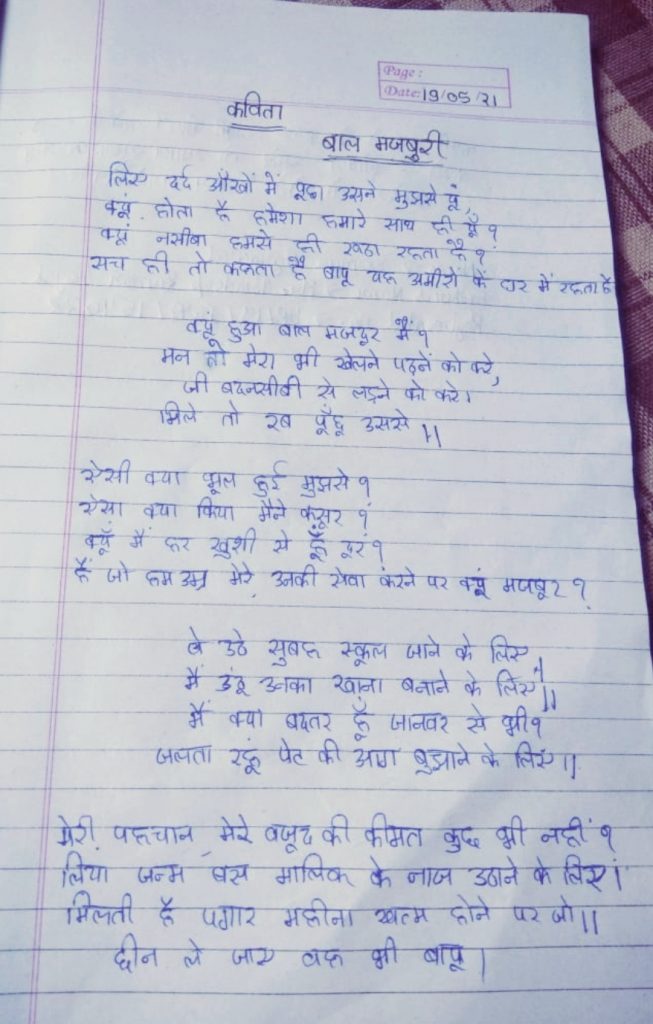 Page:
Date: 19/05/21
कविता
बाल मजबुरी
लिए दर्द आँखों में पूछा उसने मुझसे यूं,
क्यूं होता है हमेशा हमारे साथ ही यूँ ?
क्यूं नसीबा हमसे ही रूठा रहता है ?
सच ही तो कहता है बापू यह अमीरों के घर में रहता है
क्यूं हुआ बाल मजदूर मैं ?
मन तो मेरा भी खेलने पढ़नें को करे,
जी बदनसीबी से लड़ने को करे।
मिले तो रब पूँछू उससे ॥
ऐसी क्या भूल हुई मुझसे ?
ऐसा क्या किया मैंने कसूर ?
क्यूँ मैं हर खुशी से हूँ दूर ?
हैं जो हम उम्र मेरे, उनकी सेवा करने पर क्यूं मजबूर ?
वे उठे सुबह स्कूल जाने के लिए,
मैं उठूं उनका खाना बनाने के लिए॥
मैं क्या बदतर हूँ जानवर से भी ?
जलता रहूं पेट की आग बुझाने के लिए॥
मेरी पहचान, मेरे वजूद की कीमत कुछ भी नहीं ?
लिया जन्म बस मालिक के नाज उठाने के लिए।
मिलती है पगार महीना खत्म होने पर जो॥
छीन ले जाए वह भी बापू।